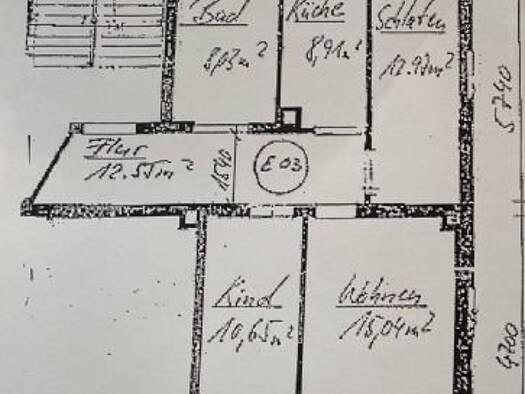 Bad
Küche
Schlafen
8,03m²
8,91m²
12.97m²
5740
Flur
12.55m²
1540
E 03
Kind
10,65m²
Wohnen
15,04m²
4200